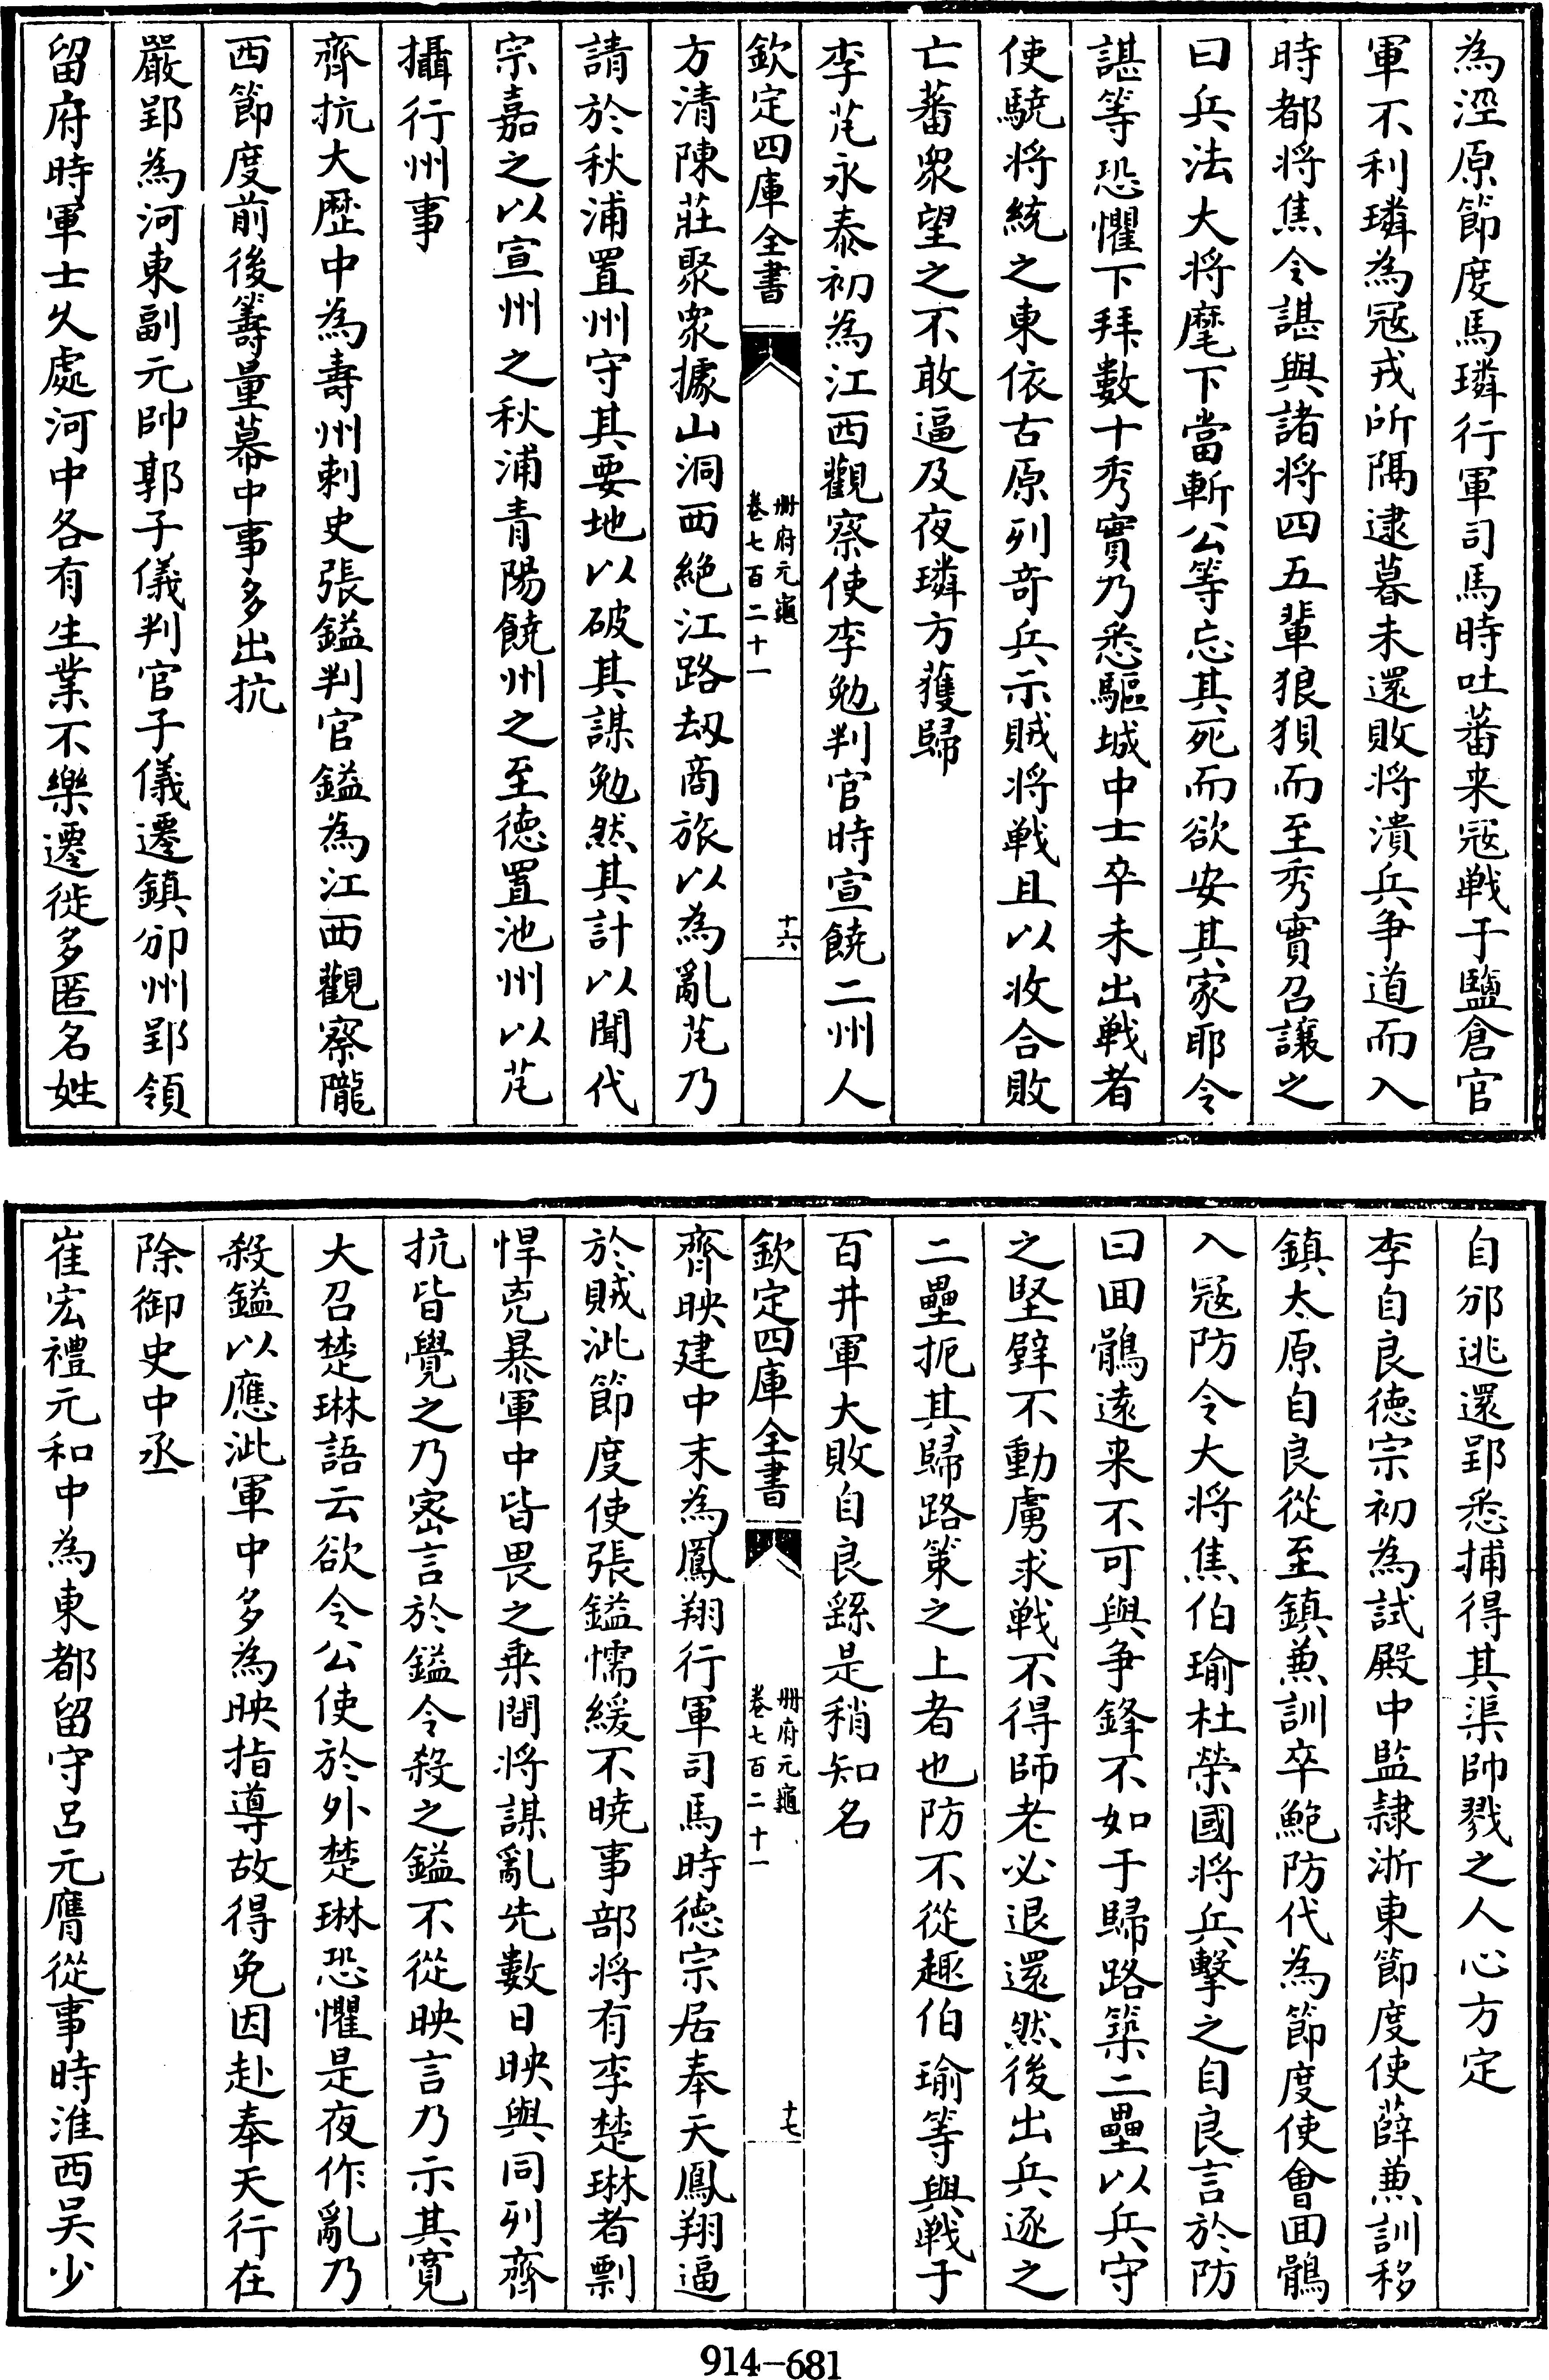 為涇原節度馬璘行軍司馬時吐蕃来宼戦于鹽倉官
軍不利璘為宼戎所隔逮暮未還敗将潰兵争道而入
時都将焦令諶與諸将四五輩狼狽而至秀實召讓之
曰兵法大将麾下當斬公等忘其死而欲安其家耶令
諶等恐懼下拜數十秀實乃悉驅城中士卒未出戦者
使驍将統之東依古原列竒兵示賊将戦且以收合敗
亡蕃衆望之不敢逼及夜璘方獲歸
李芃永泰初為江西觀察使李勉判官時宣饒二州人
欽定四庫全書
冊府元龜
卷七百二十一
十六
方清陳莊聚衆據山洞西絶江路刼商旅以為亂芃乃
請於秋浦置州守其要地以破其謀勉然其計以聞代
宗嘉之以宣州之秋浦青陽饒州之至徳置池州以芃
攝行州事
齊抗大歴中為壽州刺史張鎰判官鎰為江西觀察隴
西節度前後籌量幕中事多出抗
嚴郢為河東副元帥郭子儀判官子儀遷鎮邠州郢領
留府時軍士久處河中各有生業不樂遷徙多匿名姓
自邠逃還郢悉捕得其渠帥戮之人心方定
李自良徳宗初為試殿中監隷浙東節度使薛兼訓移
鎮太原自良從至鎮兼訓卒鮑防代為節度使會囬鶻
入宼防令大将焦伯瑜杜榮國将兵擊之自良言於防
曰囬鶻逺来不可與争鋒不如于歸路築二壘以兵守
之堅壁不動虜求戦不得師老必退還然後出兵逐之
二壘扼其歸路策之上者也防不從趣伯瑜等與戦于
百井軍大敗自良繇是稍知名
欽定四庫全書
冊府元龜
卷七百二十一
十七
齊映建中末為鳳翔行軍司馬時徳宗居奉天鳳翔逼
於賊泚節度使張鎰懦緩不曉事部将有李楚琳者剽
悍兇暴軍中皆畏之乗間将謀亂先數日映與同列齊
抗皆覺之乃宻言於鎰令殺之鎰不從映言乃示其寛
大召楚琳語云欲令公使於外楚琳恐懼是夜作亂乃
殺鎰以應泚軍中多為映指導故得免因赴奉天行在
除御史中丞
崔宏禮元和中為東都留守吕元膺從事時淮西吴少
914-681